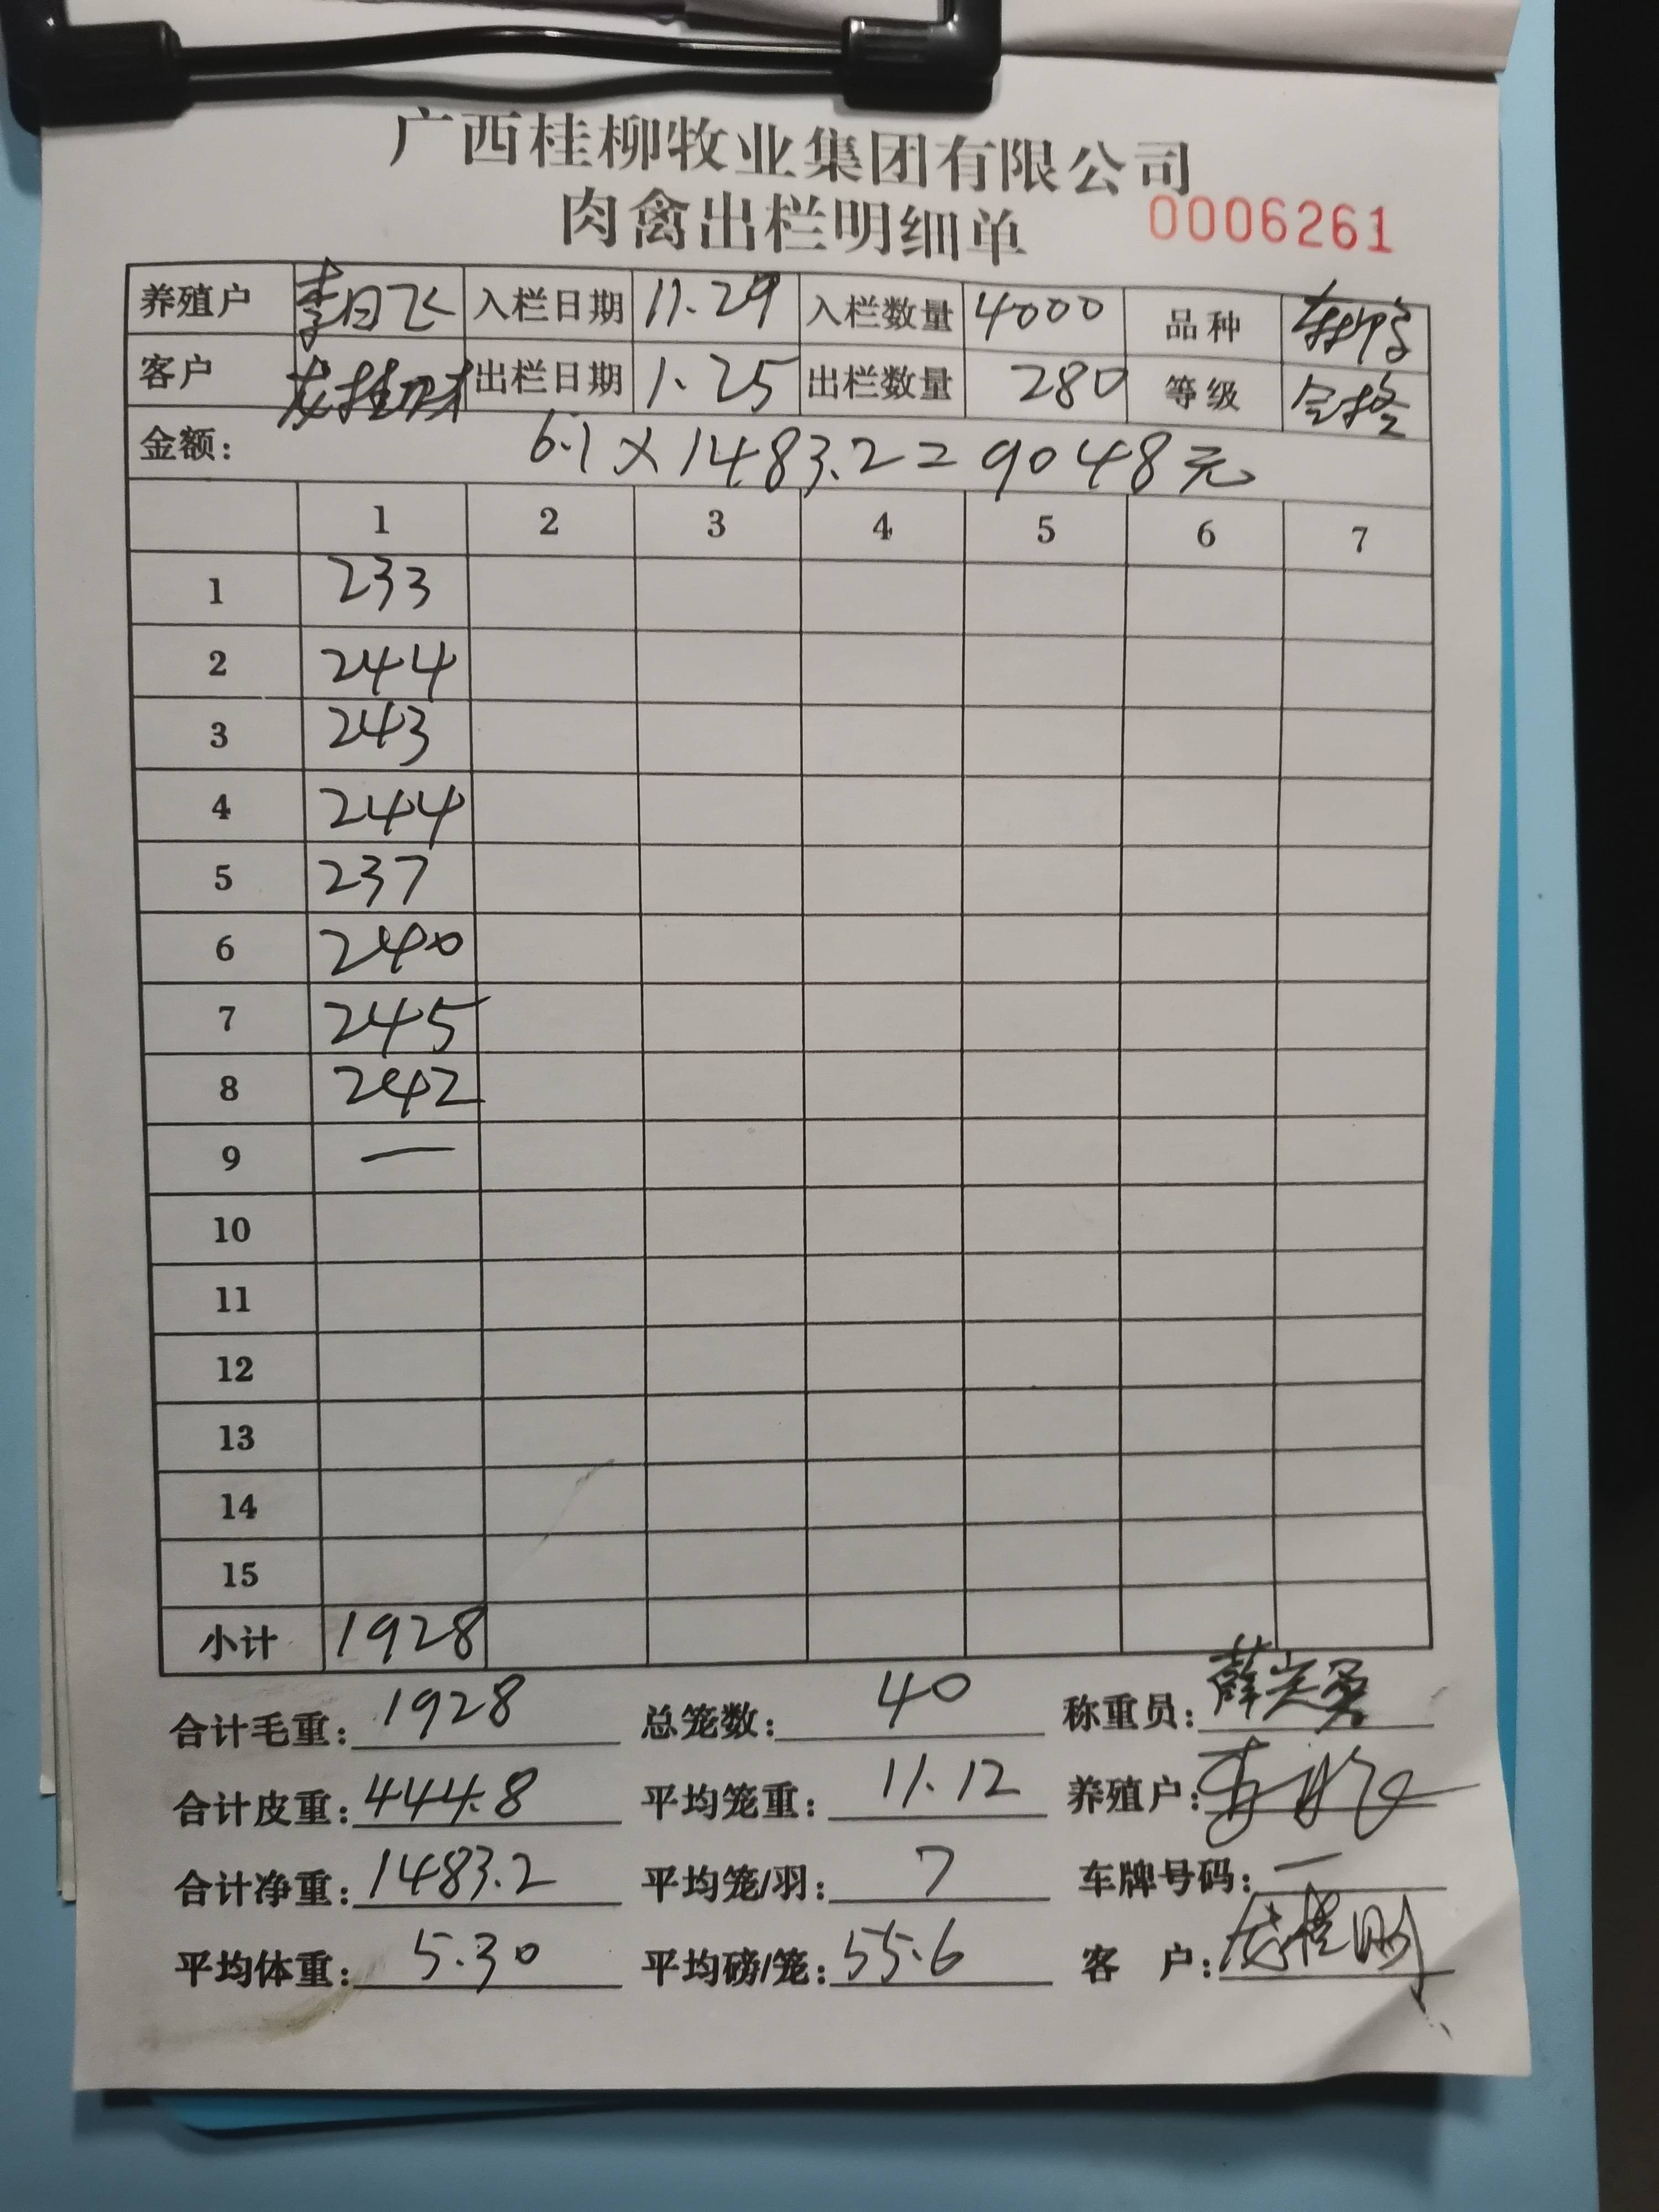 广西桂柳牧业集团有限公司
肉禽出栏明细单 0006261
养殖户 李日飞 入栏日期 11.29 入栏数量 4000 品种
客户 出栏日期 1.25 出栏数量 280 等级
金额: 6.1×1483.2=9048元
1 2 3 4 5 6 7
1 233
2 244
3 243
4 244
5 237
6 240
7 245
8 242
9 —
10
11
12
13
14
15
小计 1928
合计毛重: 1928 总笼数: 40 称重员:
合计皮重: 444.8 平均笼重: 11.12 养殖户:
合计净重: 1483.2 平均笼/羽: 7 车牌号码: —
平均体重: 5.30 平均磅/笼: 55.6 客 户: